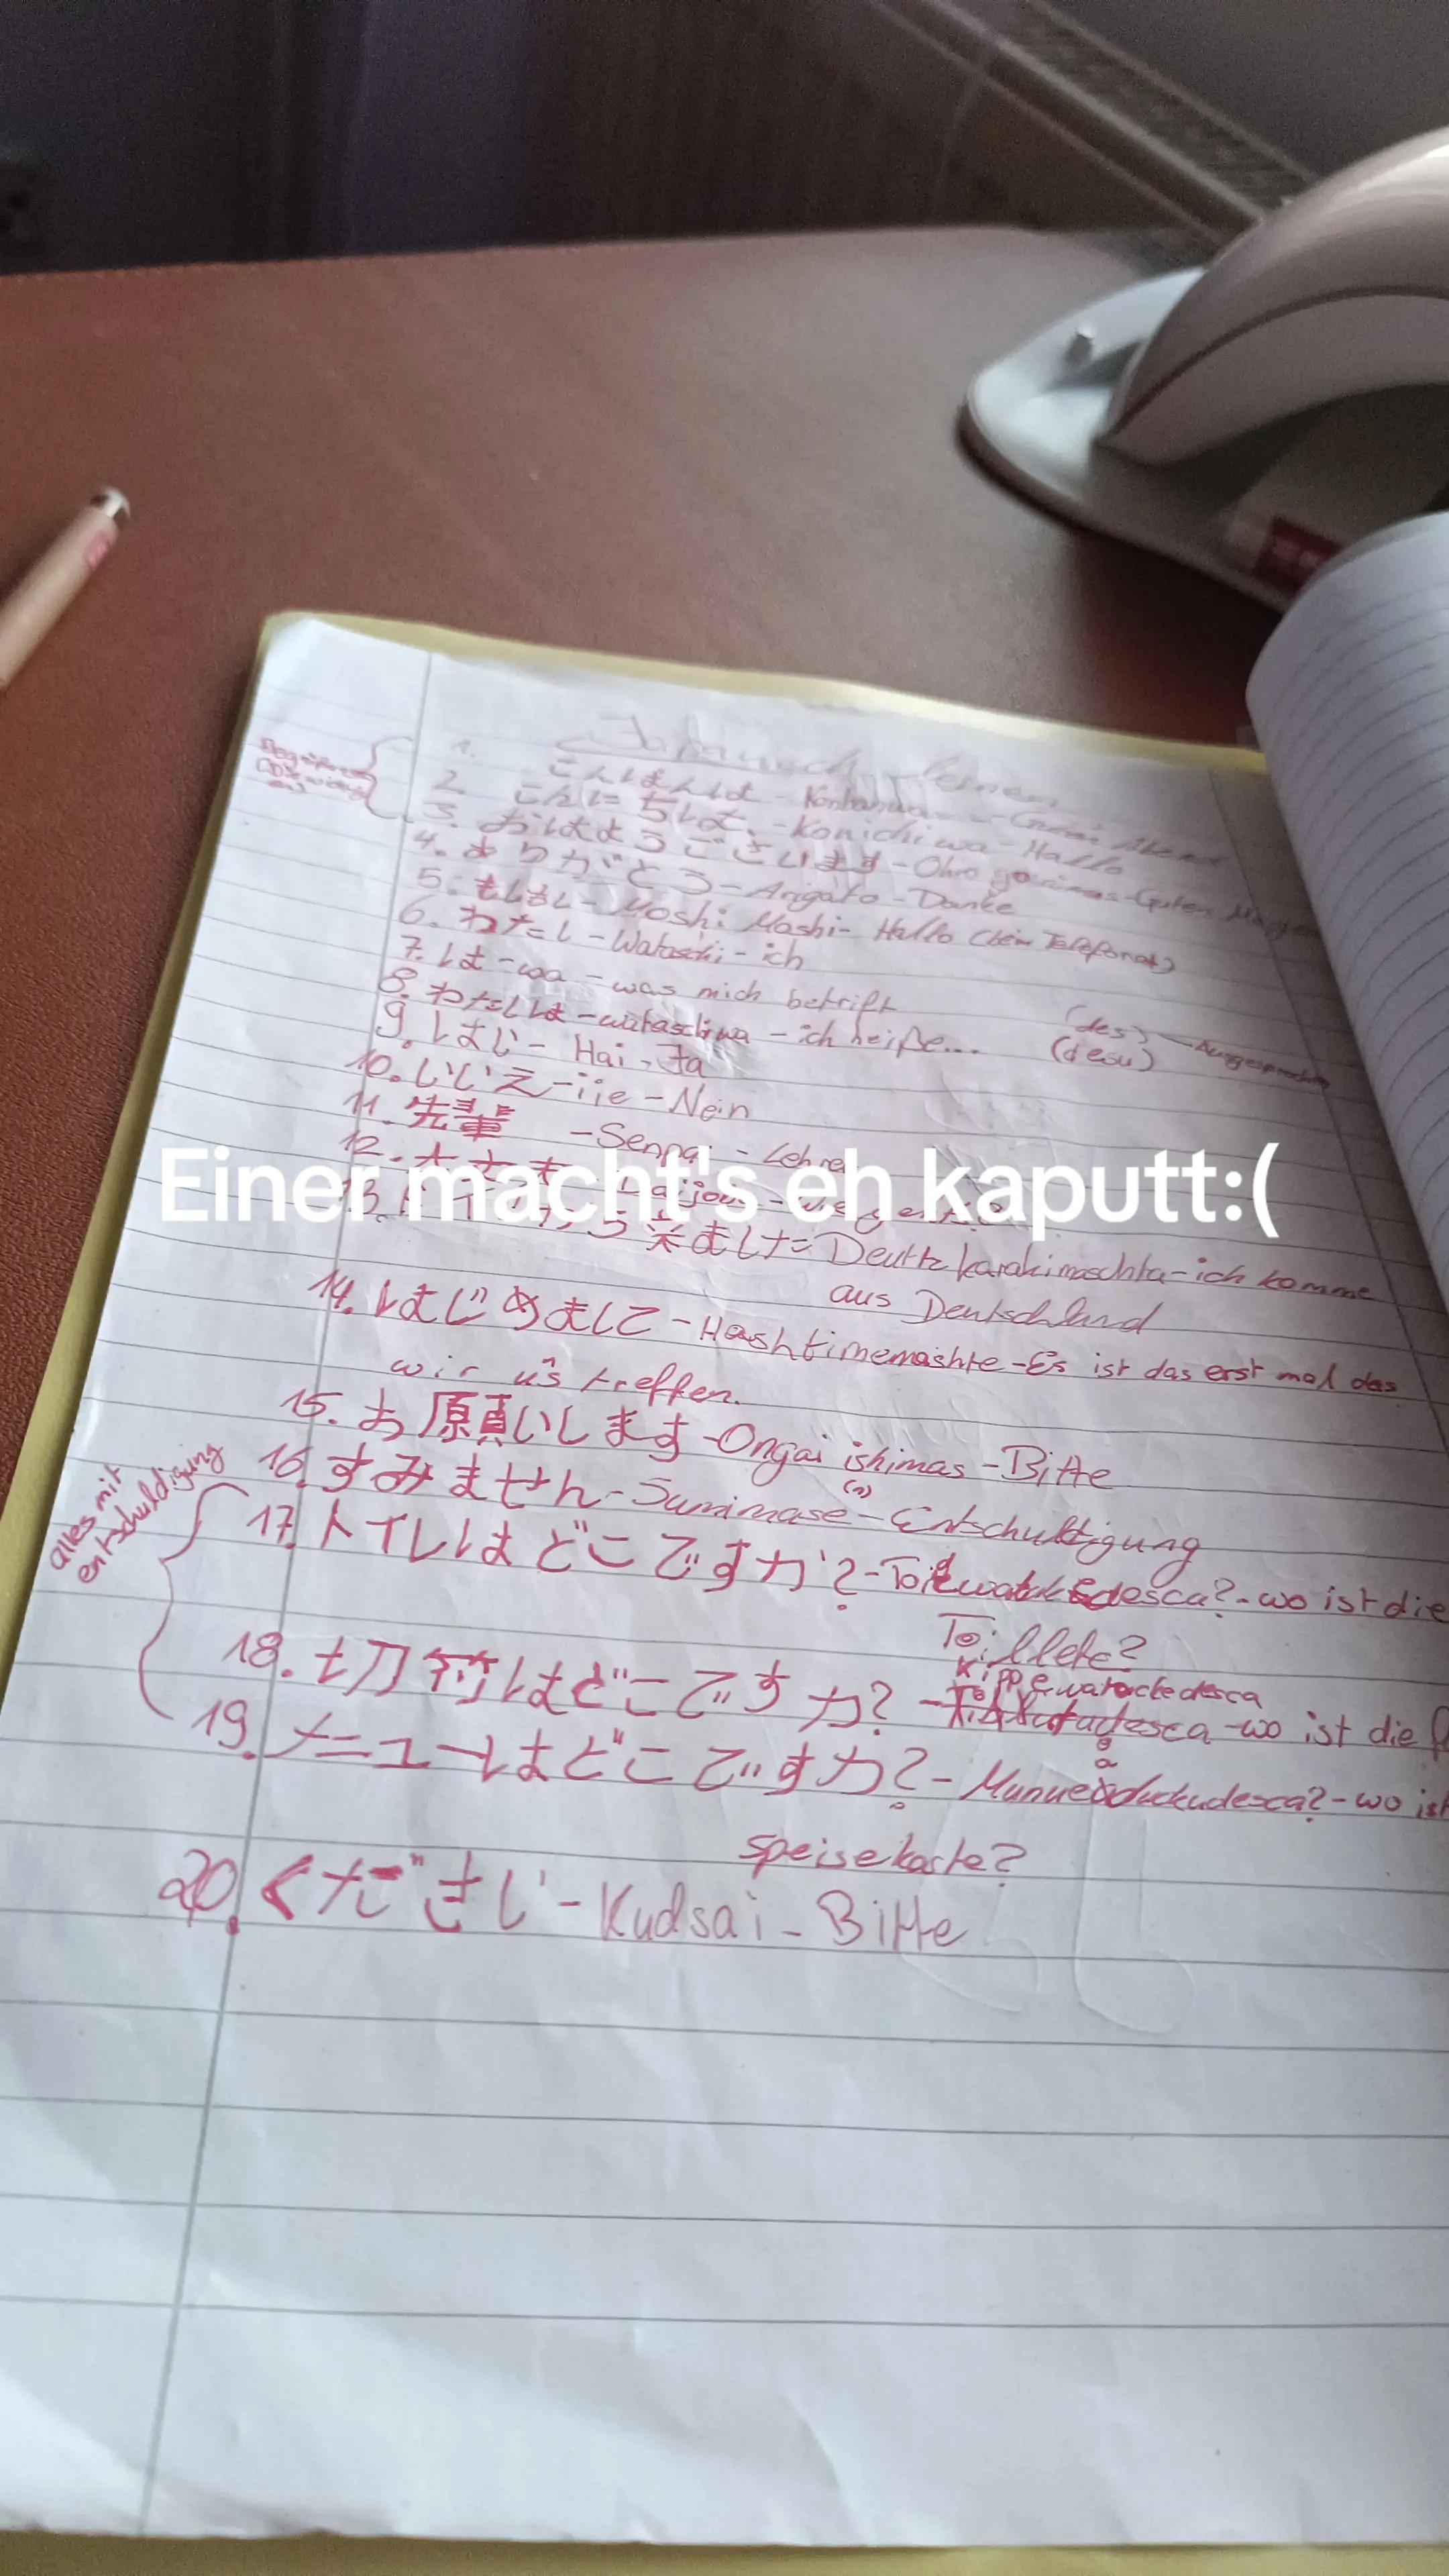 Japanisch lernen
1. こんばんは - Konbanwa - Guten Abend
2. こんにちは. - Konichiwa - Hallo
3. おはようございます - Ohio gosimas - Guten Morgen
4. ありがとう - Arigato - Danke
5. もしもし - Moshi Moshi - Hallo (beim Telefonat)
6. わたし - Wataschi - ich
7. は - wa - was mich betrift
8. わたしは - wataschiwa - ich heiße...
(des)
(desu)
Ausgesprochen
9. はい - Hai - Ja
10. いいえ - iie - Nein
11. 先輩 - Senpai - Lehrer
12.
Einer macht's eh kaputt:(
13. ら来ました = Deutz karakimaschta - ich komme
aus Deutschland
14. はじめまして - Hashtimemashte - Es ist das erst mal das
wir uns treffen.
15. お願いします - Ongai ishimas - Bitte
16. すみません - Sumimase - Entschultigung
(n)
alles mit
entschuldigung
17. トイレはどこですか? - wo ist die
Toillete?
18. 切符はどこですか? - wo ist die
Kippewarockedesca
19. メニューはどこですか? - wo ist
speisekarte?
20. ください - Kudsai - Bitte